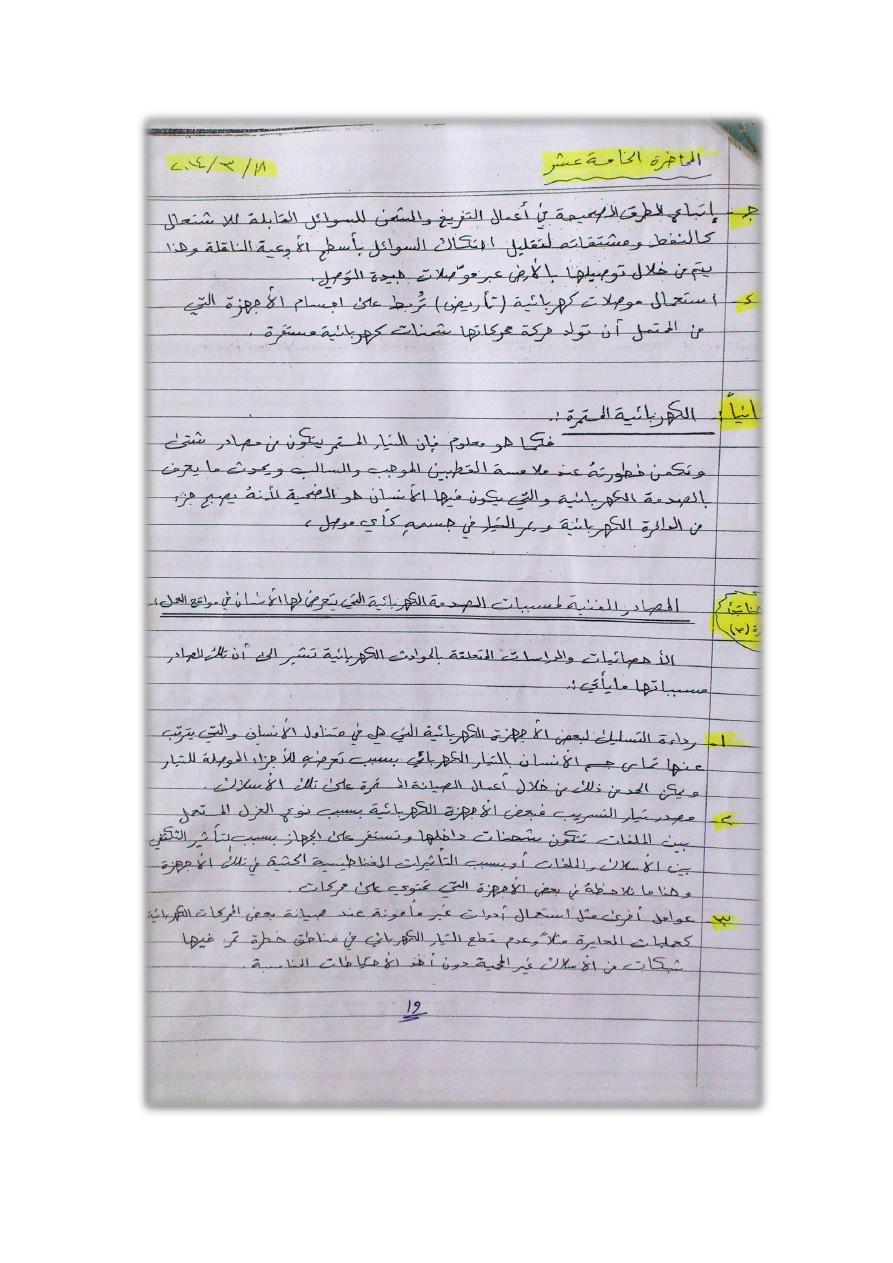 المحاضرة الخامسة عشر
جـ - إتباع الطرق الصحيحة في أعمال التفريغ والشحن للسوائل القابلة للاشتعال
كالنفط ومشتقاته لتقليل احتكاك السوائل بأسطح الأوعية الناقلة وهذا
يتم من خلال توصيلها بالأرض عبر موصّلات جيدة الوَصيل.
د - استعمال موصلات كهربائية (تأريض) تُربط على اجسام الأجهزة التي
من المحتمل أن تولد حركة محركاتها شحنات كهربائية مستقرة .
انياً: الكهربائية المستمرة :.
فكما هو معلوم فإن التيار المستمر يتكون من مصادر شتى
وتكمن خطورتهُ عند ملامسة القطبين الموجب والسالب ويحدث ما يعرف
بالصدمة الكهربائية والتي يكون فيها الأنسان هو الضحية لأنهُ يصبح جزء
من الدائرة الكهربائية ويمر التيار في جسمهِ كأي موصل .
المصادر الفنية لمسببات الصدمة الكهربائية التي يتعرض لها الأنسان في مواقع العمل:
الأحصائيات والدراسات المتعلقة بالحوادث الكهربائية تشير الى أن تلك المصادر
مسبباتها مايأتي :.
١- رداءة التسليك لبعض الأجهزة الكهربائية التي هي في متناول الأنسان والتي يترتب
عنها تماس جسم الأنسان بالتيار الكهربائي بسبب تعرضهِ للأجزاء الموصلة للتيار
ويمكن الحد من ذلك من خلال أعمال الصيانة المستمرة على تلك الأسلاك .
٢- مصدر تيار التسريب فبعض الأجهزة الكهربائية بسبب نوعي العزل المستعمل
بين الملفات تتكون شحنات داخلها وتستقر على الجهاز بسبب تأثير التكثفي
بين الأسلاك والملفات أو بسبب التأثيرات المغناطيسية الحثية في تلك الأجهزة
وهذا ما نلاحظهُ في بعض الأجهزة التي تحتوي على محركات .
٣- عوامل أخرى مثل استعمال أدوات غير مأمونة عند صيانة بعض المحركات الكهربائية
كعمليات المعايرة مثلاً وعدم قطع التيار الكهربائي في مناطق خطرة تمر فيها
شبكات من الأسلاك غير المحمية دون أخذ الأحتياطات المناسبة .